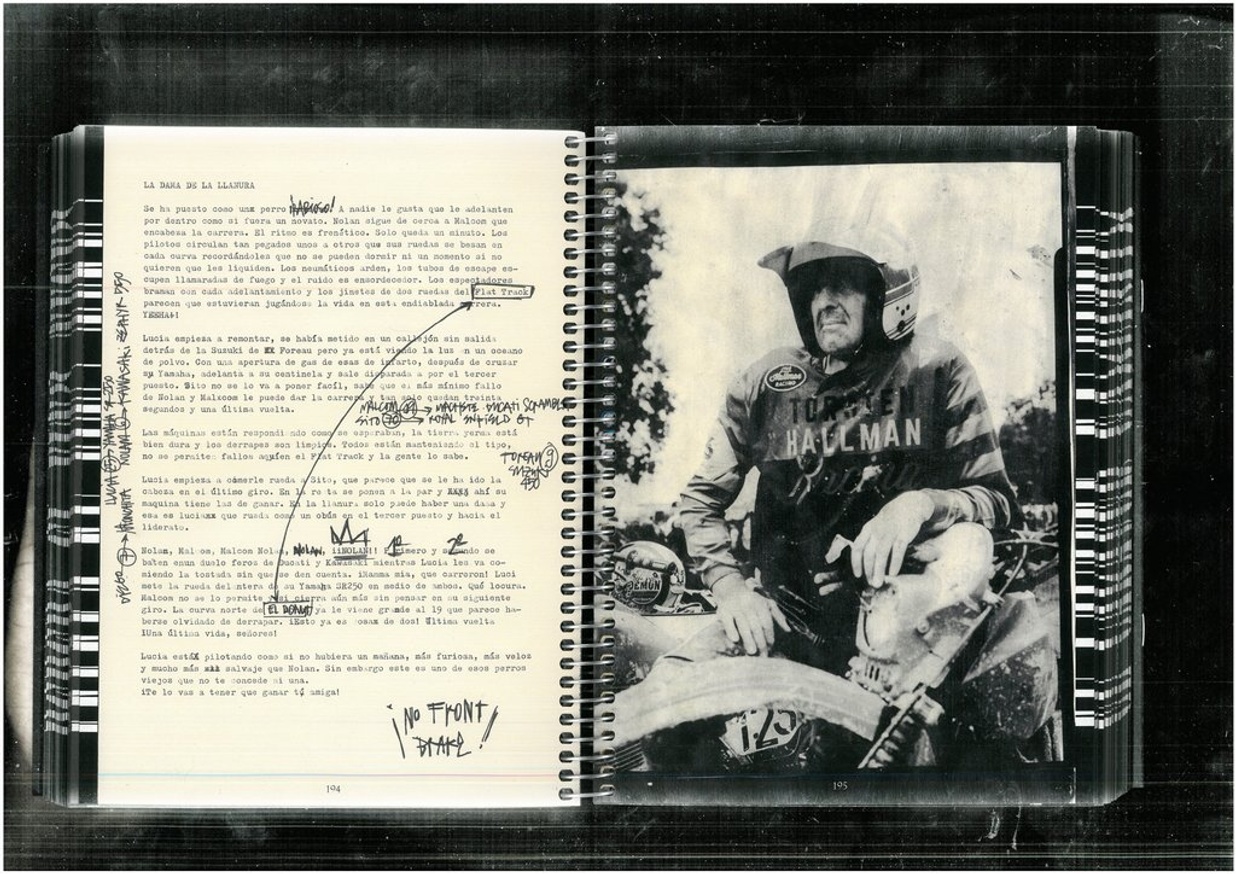 LA DAMA DE LA LLANURA
Se ha puesto como unx perro ¡RABIOSO! A nadie le gusta que le adelanten
por dentro como si fuera un novato. Nolan sigue de cerca a Malcom que
encabeza la carrera. El ritmo es frenético. Solo queda un minuto. Los
pilotos circulan tan pegados unos a otros que sus ruedas se besan en
cada curva recordándoles que no se pueden dormir ni un momento si no
quieren que les liquiden. Los neumáticos arden, los tubos de escape es-
cupen llamaradas de fuego y el ruido es ensordecedor. Los espectadores
braman con cada adelantamiento y los jinetes de dos ruedas del Flat Track
parecen que estuvieran jugándose la vida en esta endiablada carrera.
Lucia empieza a remontar, se había metido en un callejón sin salida
detrás de la Suzuki de XX Foreau pero ya está viendo la luz en un oceano
de polvo. Con una apertura de gas de esas de infarto, después de cruzar
su Yamaha, adelanta a su centinela y sale disparada a por el tercer
puesto. Sito no se lo va a poner facíl, sabe que el más mínimo fallo
de Nolan y Malxcom le puede dar la carrera y tan solo quedan treinta
segundos y una última vuelta.
MALCOM (19) → MACHISTE DUCATI SCRAMBLER
SITO → ROYAL ENFIELD GT
Las máquinas están respondiendo como se esperaban, la tierra yerma está
bien dura y los derrapes son limpios. Todos están manteniendo el tipo,
no se permiten fallos aquíen el Flat Track y la gente lo sabe.
FOREAU (9)
SUZUKI
450
Lucia empieza a cómerle rueda a Sito, que parece que se le ha ido la
cabeza en el último giro. En la recta se ponen a la par y XXXX ahí su
maquina tiene las de ganar. En la llanura solo puede haber una dama y
esa es luciaxx que rueda como un obús en el tercer puesto y hacia el
liderato.
Nolan, Malcom, Malcom Nolan, NOLAN, ¡¡NOLAN!! Primero y segundo se
1º 2º
baten enun duelo feros de Ducati y Kawasaki mientras Lucia les va co-
miendo la tostada sin que se den cuenta. ¡Mamma mia, que carreron! Luci
mete la rueda delantera de su Yamaha SR250 en medio de ambos. Qué locura.
Malcom no se lo permite y si cierra aún más sin pensar en su siguiente
giro. La curva norte de EL DONUT ya le viene grande al 19 que parece ha-
berse olvidado de derrapar. ¡Esto ya es cosax de dos! Última vuelta
¡Una última vida, señores!
Lucia estáX pilotando como si no hubiera un mañana, más furiosa, más veloz
y mucho más salvaje que Nolan. Sin embargo este es uno de esos perros
viejos que no te concede ni una.
¡Te lo vas a tener que ganar tú amiga!
¡NO FRONT
BRAKE!
194
HALLMAN
DEMON
125
195